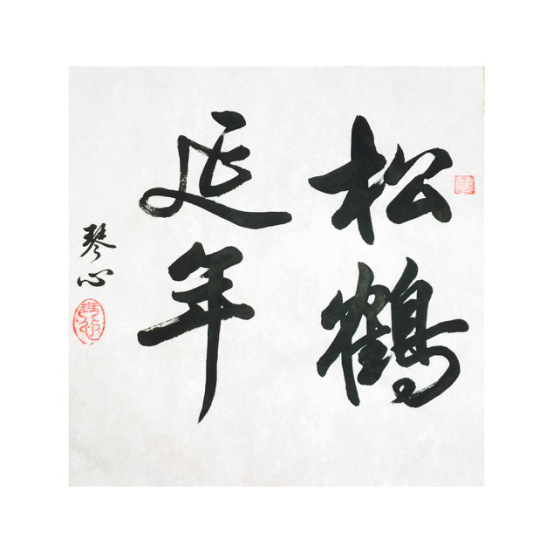 松鶴
延年
琴心